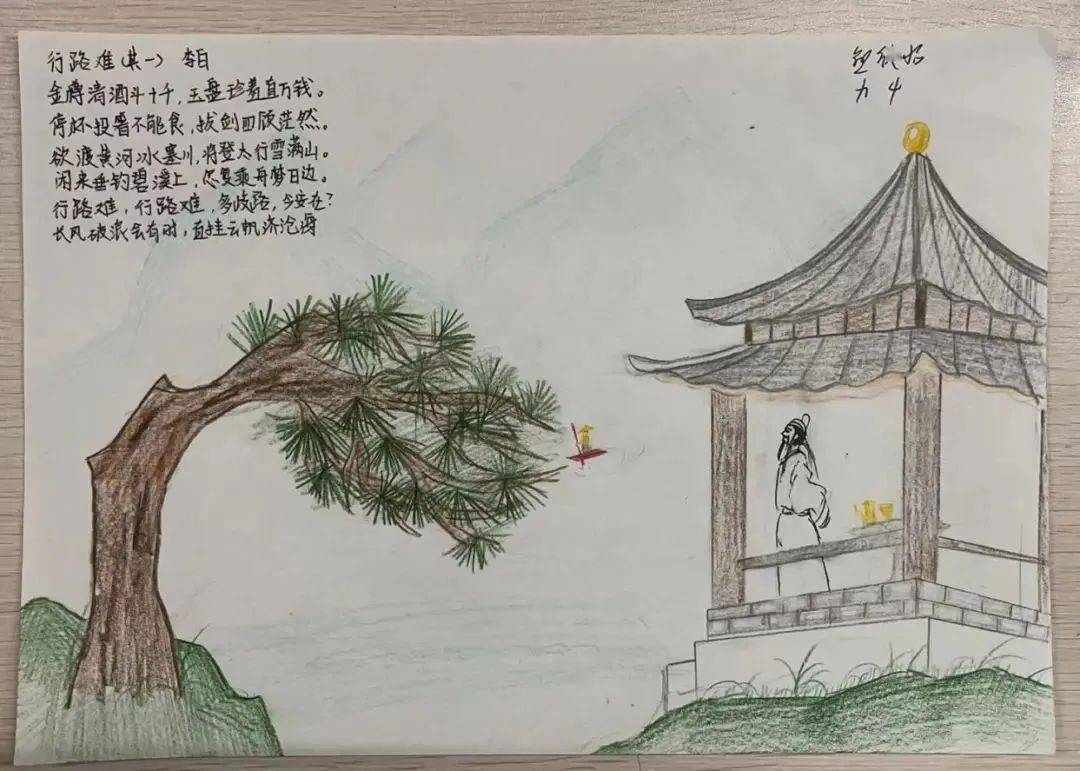 行路难(其一) 李白
金樽清酒斗十千，玉盘珍羞直万钱。
停杯投箸不能食，拔剑四顾茫然。
欲渡黄河冰塞川，将登太行雪满山。
闲来垂钓碧溪上，忽复乘舟梦日边。
行路难，行路难，多歧路，今安在？
长风破浪会有时，直挂云帆济沧海